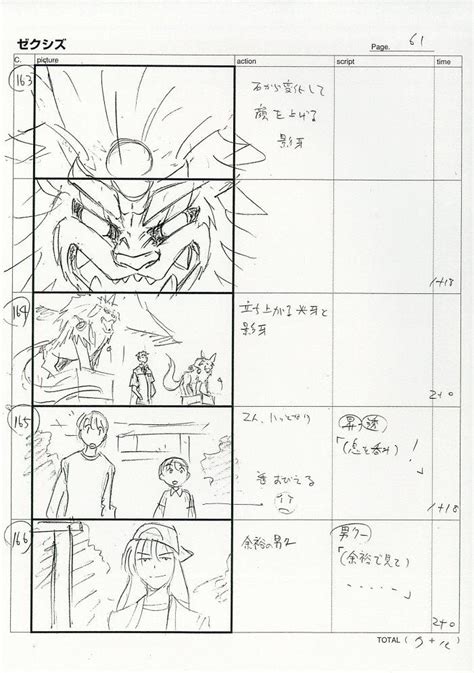 ゼクシズ
Page. 61
C. picture action script time
163
石から変化して
顔を上げる
影牙
1+18
164
立ち上がる光牙と
影牙
2+0
165
2人、ハッとなり
おびえる
「(息を呑み)!
1+18
166
余裕の男2
「(余裕で見て)
・・・・・」
2+0
TOTAL (